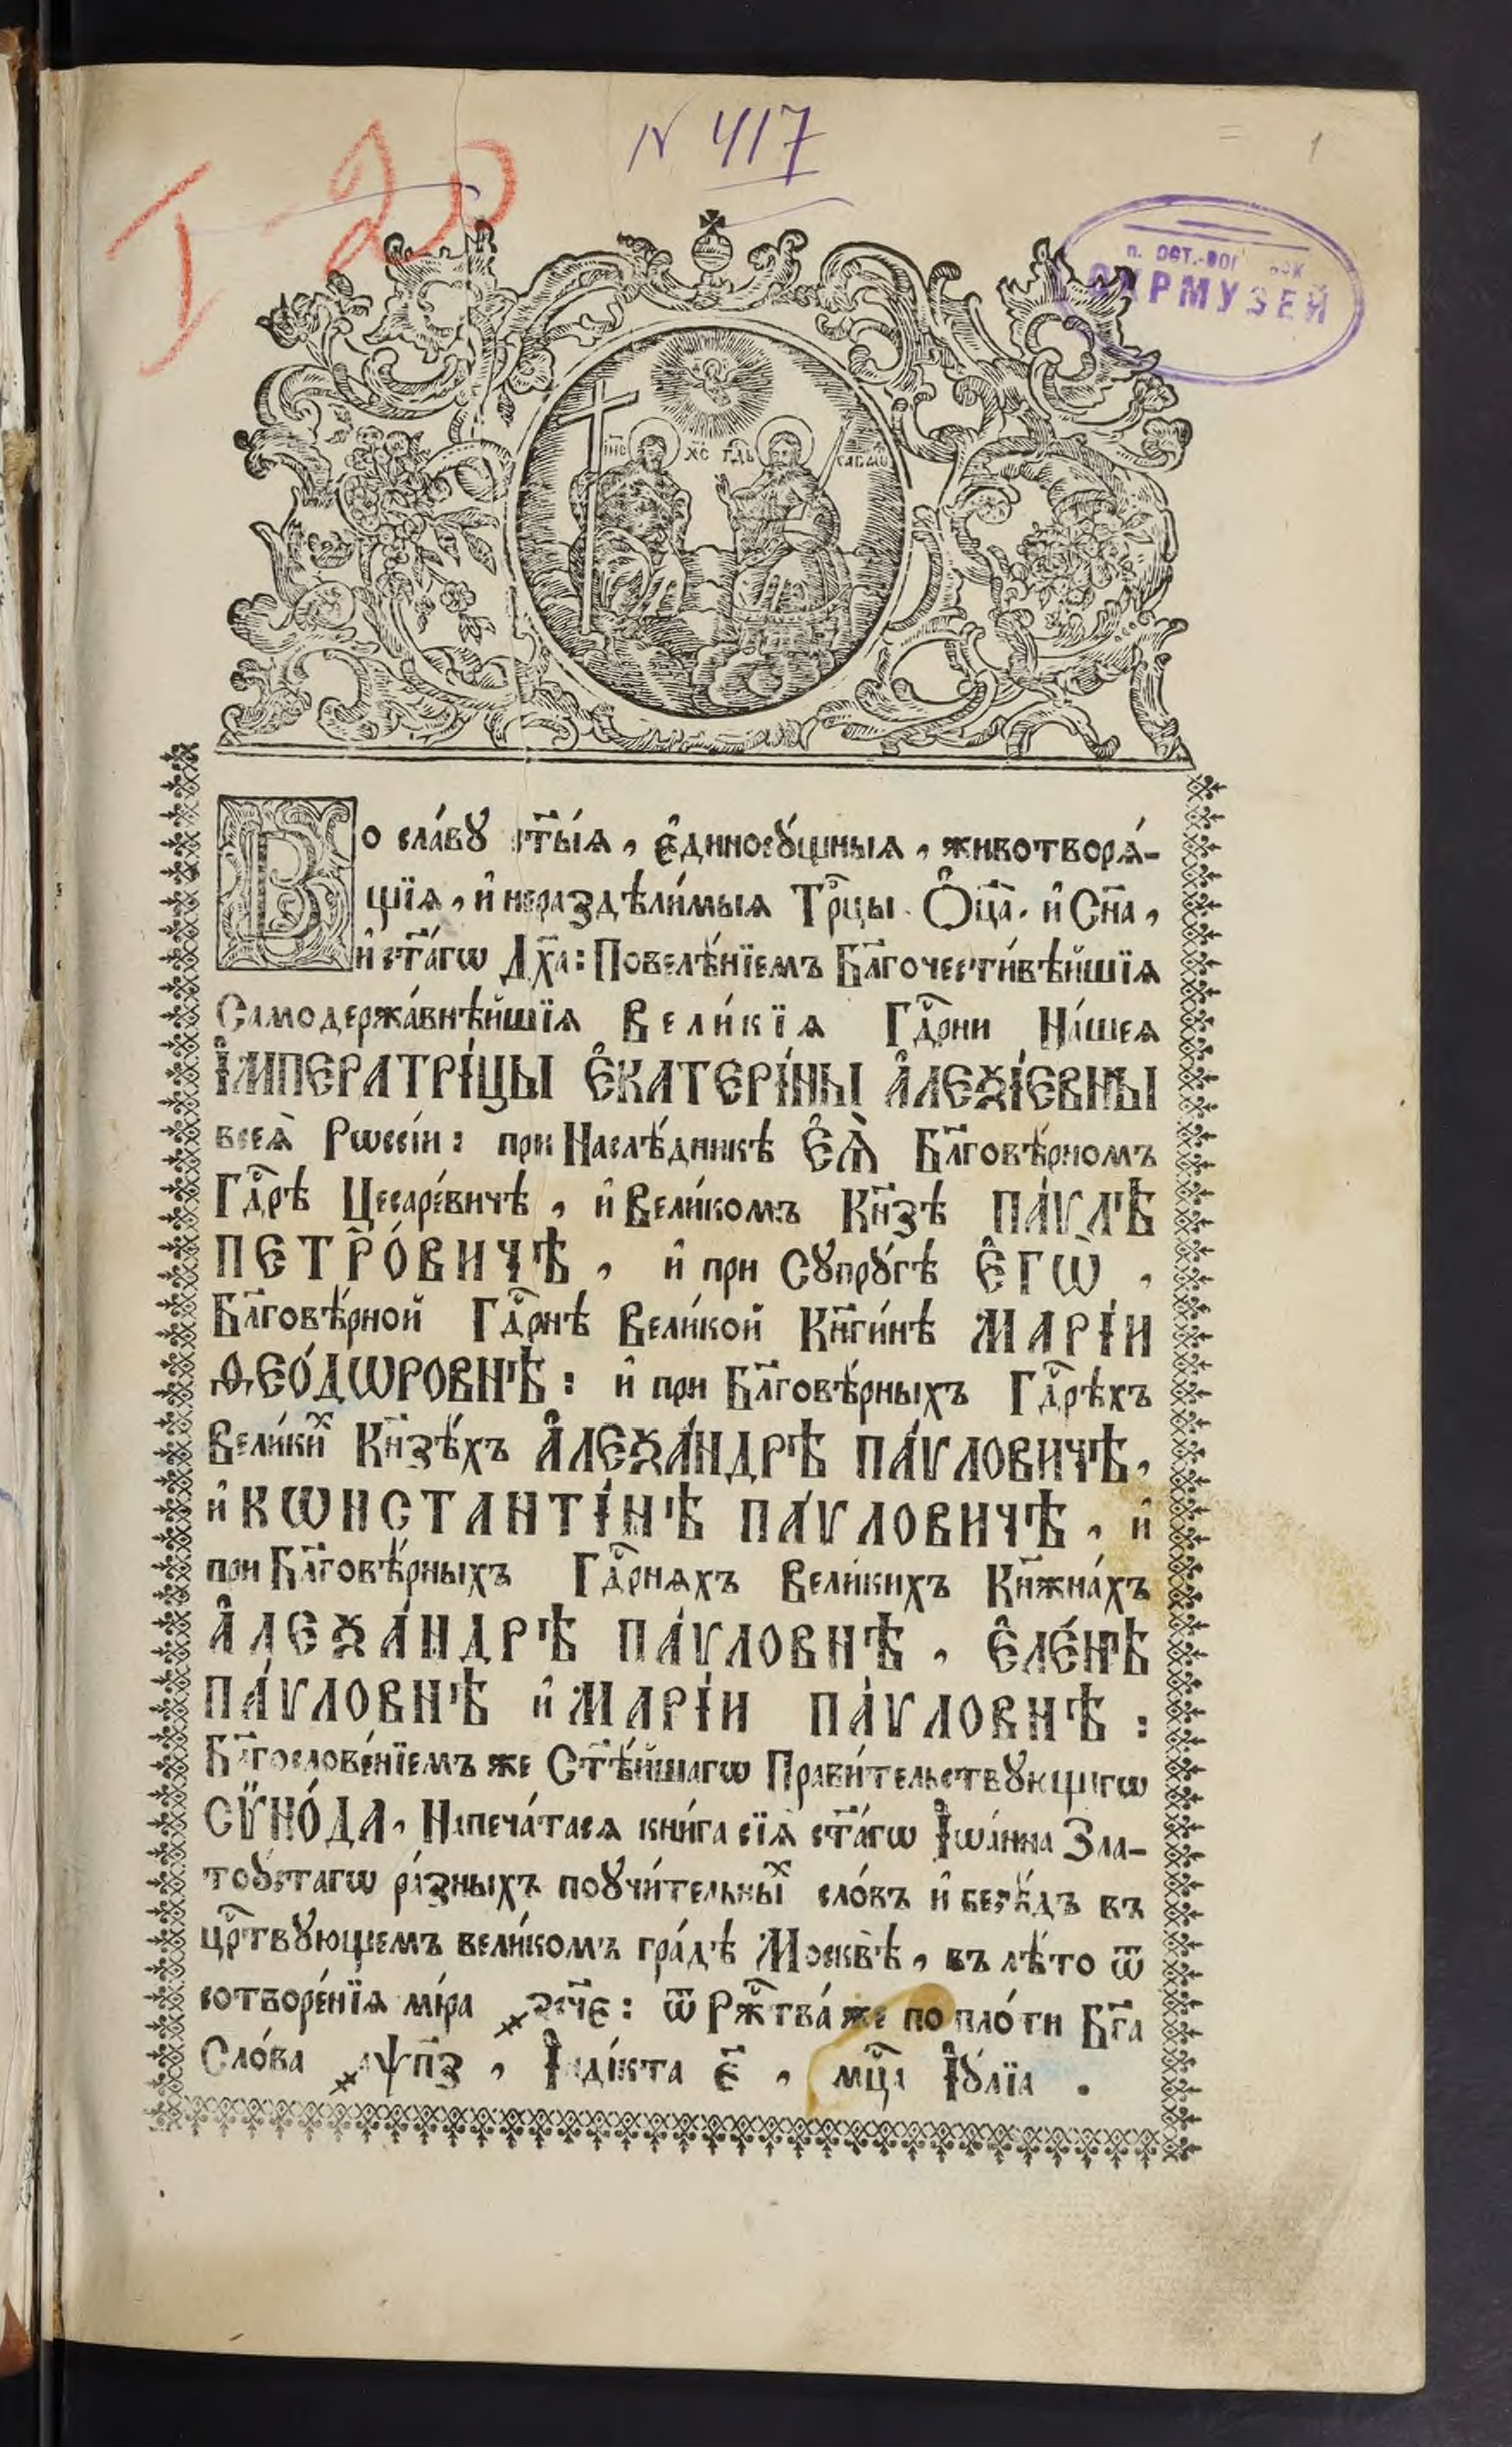 I-20
N 417
1
ОКРМУЗЕЙ
І҆И҃С Х҃С Гдⷭ҇ь саваѡ́ѳ
Во сла́вꙋ ст҃ы́ѧ, є҆диносꙋ́щныѧ, животворѧ́-
щїѧ, и҆ нераздѣли́мыѧ Трⷪ҇цы. Ѻ҆ц҃а̀. и҆ Сн҃а,
и҆ ст҃а́гѡ Дх҃а: Повелѣ́нїемъ Бл҃гочести́вѣйшїѧ
Самодержа́внѣйшїѧ Вели́кїѧ Гдⷭ҇рни На́шеѧ
І҆МПЕРАТРІ́ЦЫ Є҆КАТЕРІ́НЫ А҆ЛЕѮІ́ЕВНЫ
всеѧ̀ Рѡссі́и: при Наслѣ́дникѣ Є҆Ѧ̀ Бл҃говѣ́рномъ
Гдⷭ҇рѣ Цесаре́вичѣ, и҆ Вели́комъ Кн҃зѣ ПА́ѴЛѢ
ПЕТРО́ВИЧѢ, и҆ при Сꙋпрꙋ́гѣ Є҆ГѠ̀,
Бл҃говѣ́рной Гдⷭ҇рнѣ Вели́кой Кн҃ги́нѣ МАРІ́И
ѲЕО́ДѠРОВНѢ: и҆ при Бл҃говѣ́рныхъ Гдⷭ҇рѣхъ
Вели́киⷯ Кн҃зѣ́хъ А҆ЛЕѮА́НДРѢ ПА́ѴЛОВИЧѢ,
и҆ КѠНСТАНТІ́НѢ ПА́ѴЛОВИЧѢ, и҆
при Бл҃говѣ́рныхъ Гдⷭ҇рнѧхъ Вели́кихъ Кн҃жна́хъ
А҆ЛЕѮА́НДРѢ ПА́ѴЛОВНѢ, Є҆ЛЕ́НѢ
ПА́ѴЛОВНѢ и҆ МАРІ́И ПА́ѴЛОВНѢ:
Бл҃гослове́нїемъ же Ст҃ѣ́йшагѡ Прави́тельствꙋющагѡ
СѴ̈НО́ДА, Напеча́тасѧ кни́га сїѧ̀ ст҃а́гѡ І҆ѡа́нна Зла-
тоꙋ́стагѡ ра́зныхъ поꙋчи́тельныⷯ сло́въ и҆ бесѣ́дъ въ
црⷭ҇твꙋющемъ вели́комъ гра́дѣ Москвѣ̀, въ лѣ́то ѿ
сотворе́нїѧ мі́ра ҂зсч҃є: ѿ Ржⷭ҇тва́ же по пло́ти Бг҃а
Сло́ва ҂аѱп҃з, І҆нді́кта є҃, мцⷭ҇а І҆ꙋ́лїа.